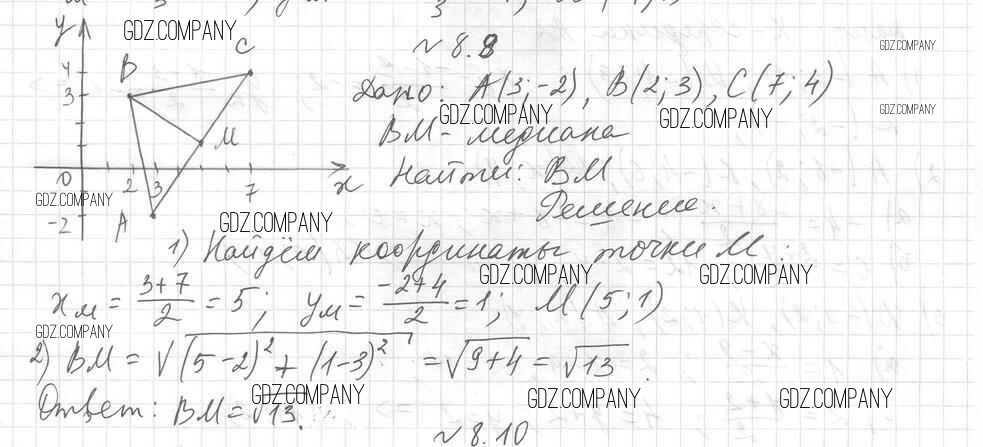 № 8.8
y
C
B
4
3
M
0
2
3
7
x
-2
A
Дано: A(3; -2), B(2; 3), C(7; 4)
BM - медиана
Найти: BM
Решение.
1) Найдём координаты точки M:
x_м = (3+7)/2 = 5; y_м = (-2+4)/2 = 1; M(5; 1)
2) BM = √((5-2)² + (1-3)²) = √(9+4) = √13.
Ответ: BM = √13.
№ 8.10
GDZ.COMPANY
GDZ.COMPANY
GDZ.COMPANY
GDZ.COMPANY
GDZ.COMPANY
GDZ.COMPANY
GDZ.COMPANY
GDZ.COMPANY
GDZ.COMPANY
GDZ.COMPANY
GDZ.COMPANY
GDZ.COMPANY
GDZ.COMPANY